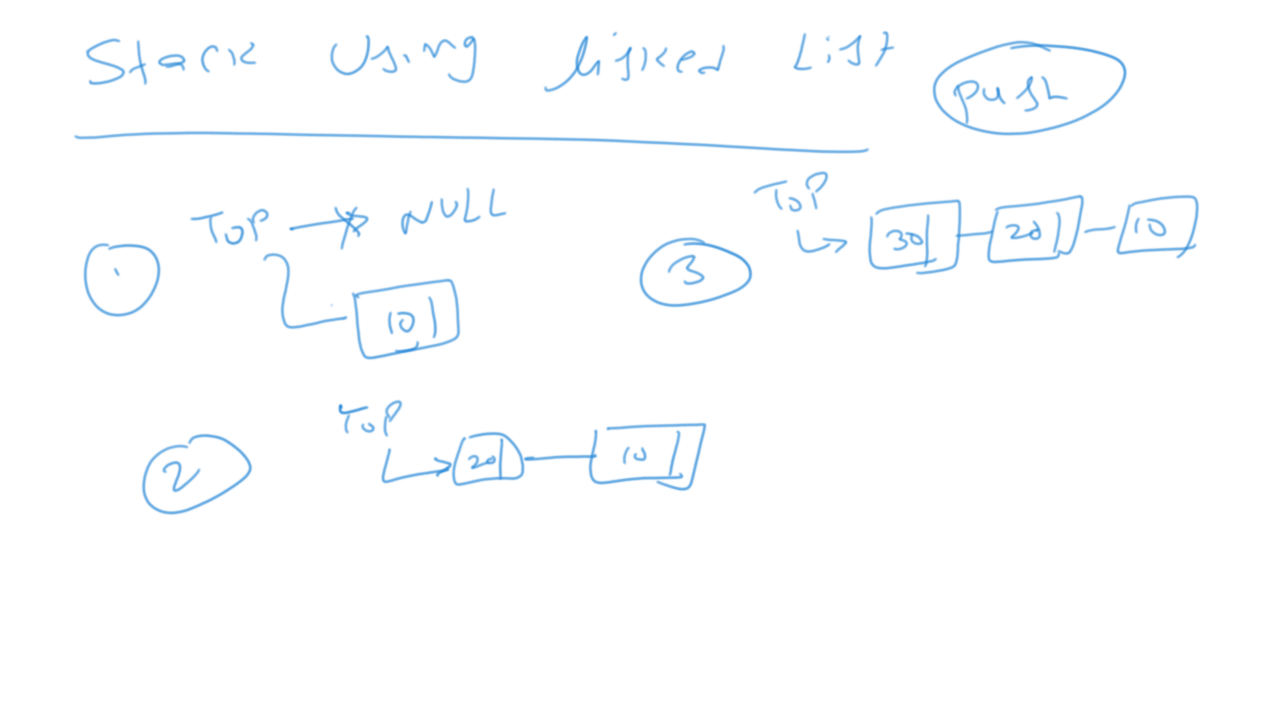 Stack Using Linked List
push
1
TOP → NULL
10
2
TOP
20 10
3
TOP
30 20 10